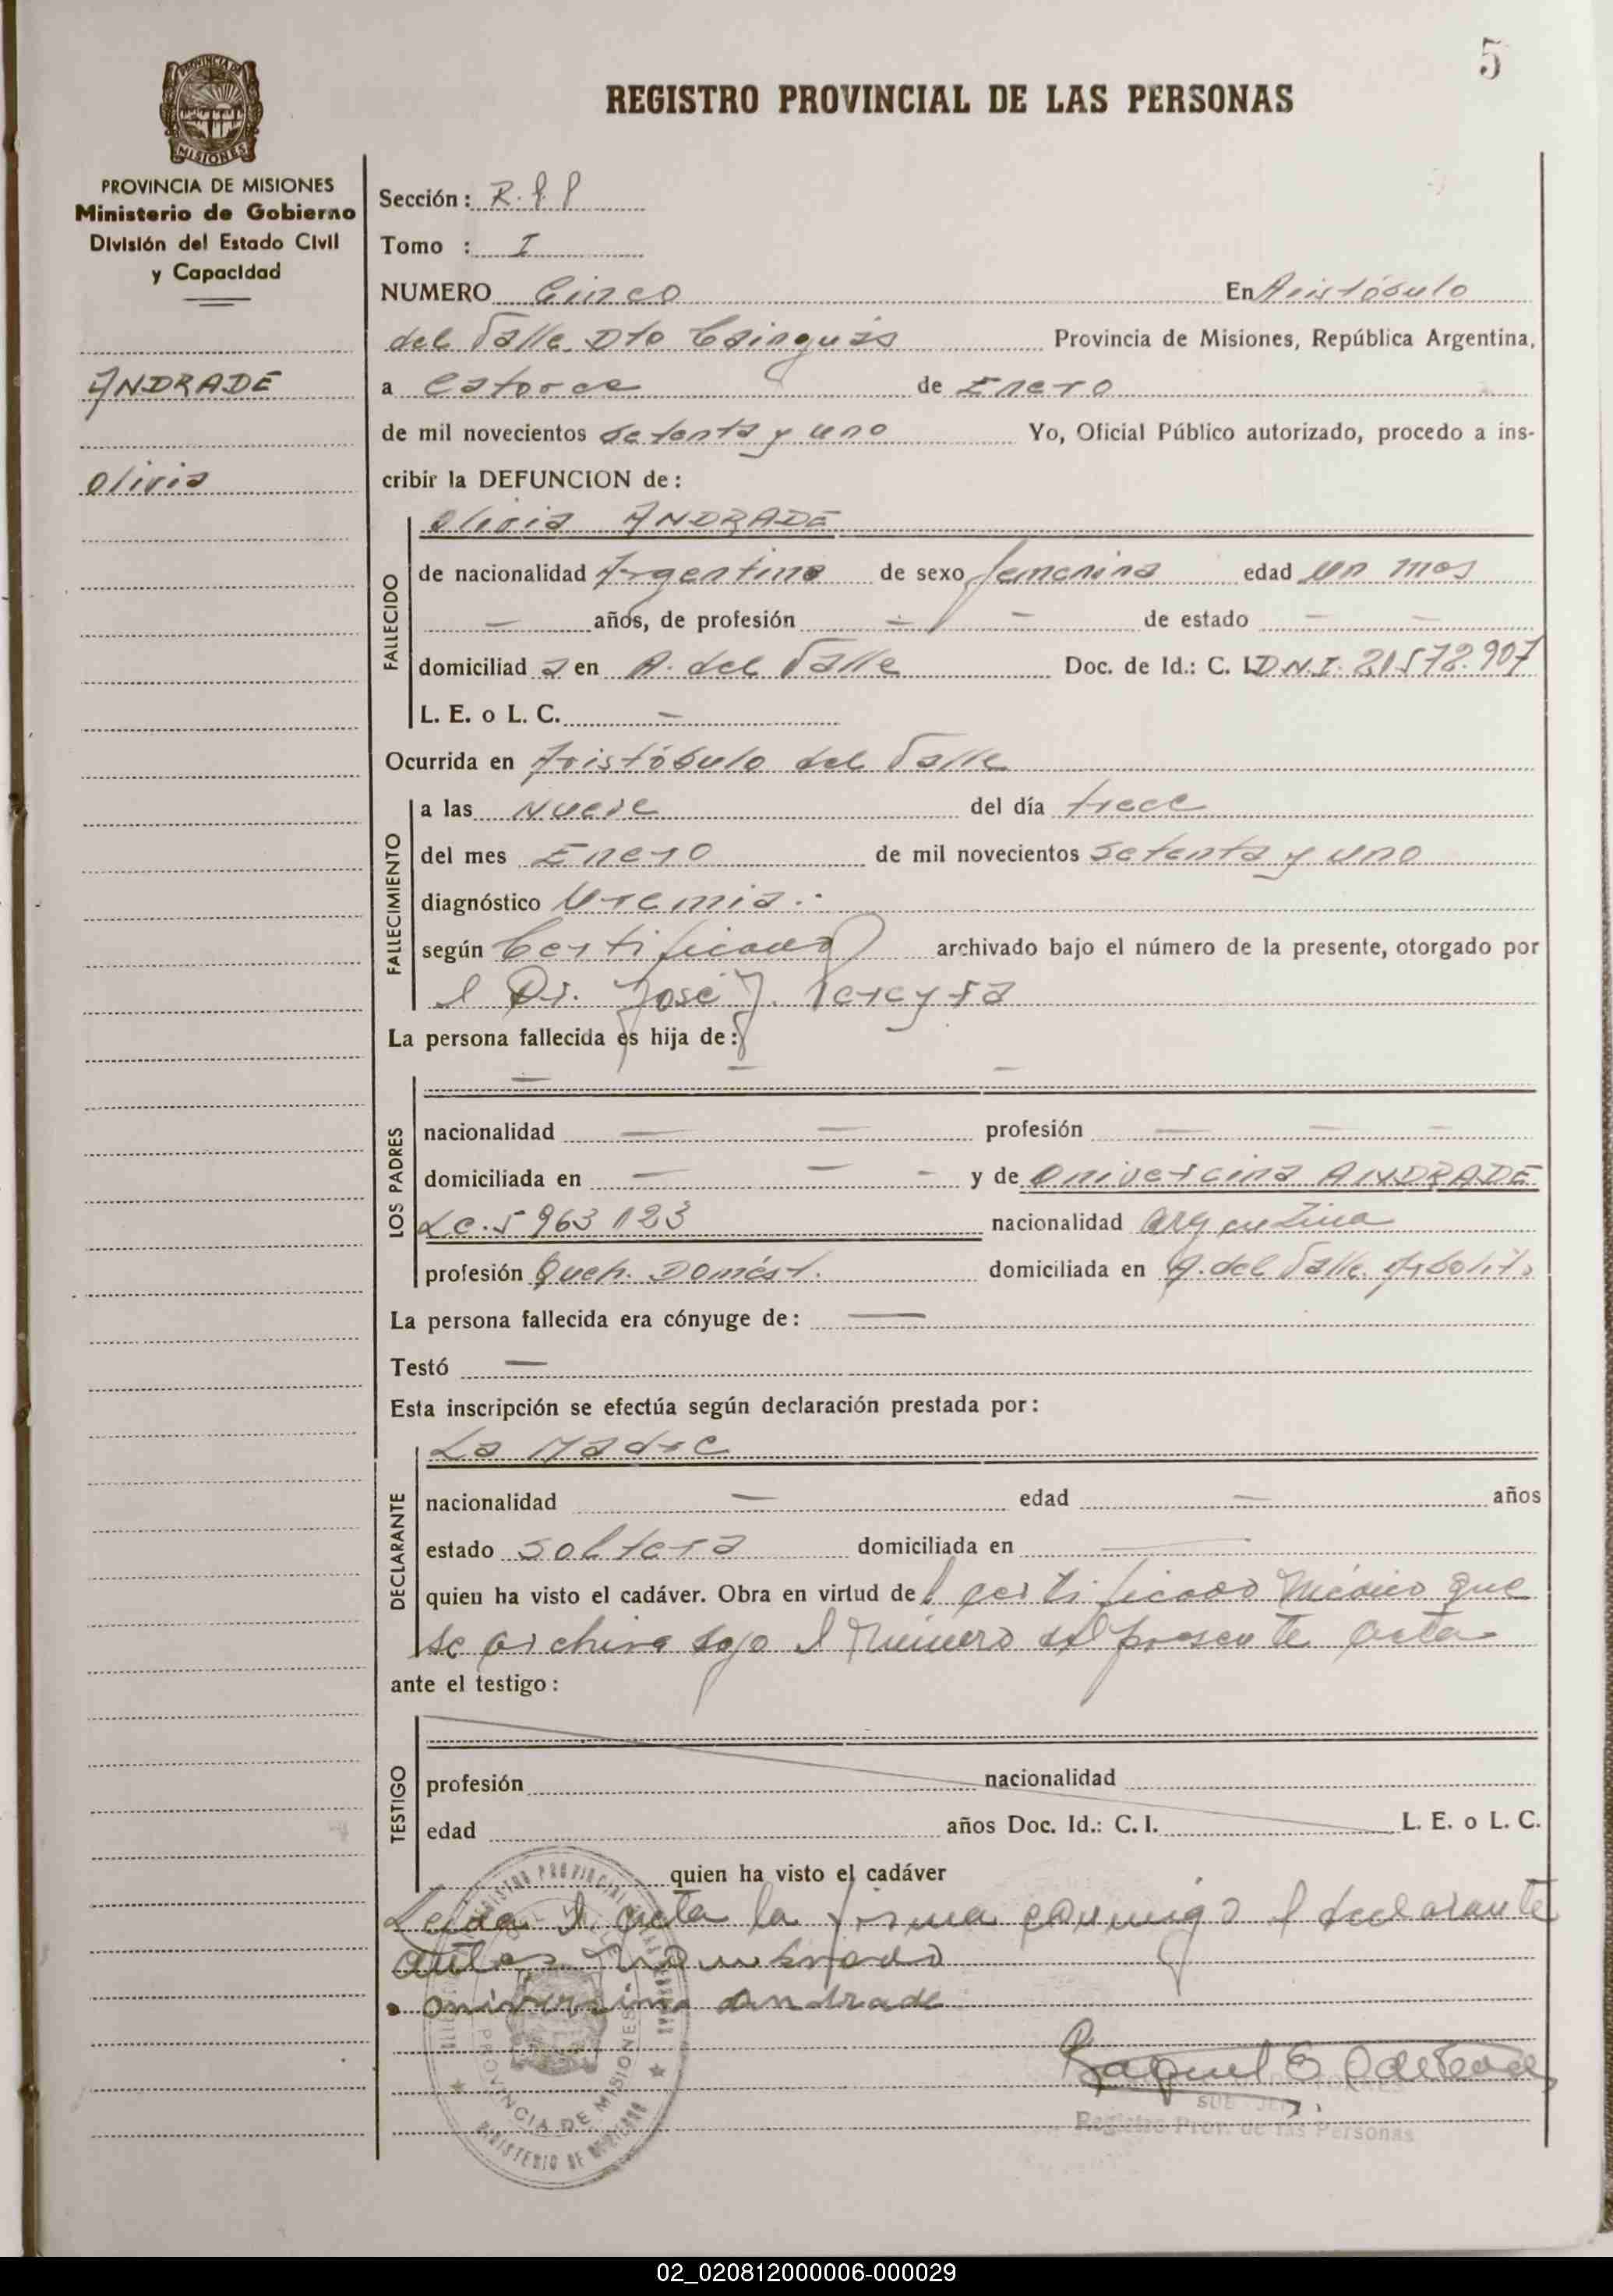 5
REGISTRO PROVINCIAL DE LAS PERSONAS
MISIONES
PROVINCIA DE MISIONES
Ministerio de Gobierno
División del Estado Civil
y Capacidad
ANDRADE
Olivia
Sección: R.P.P
Tomo : I
NUMERO Cinco En Aristóbulo
del Valle Dto Cainguás Provincia de Misiones, República Argentina,
a Catorce de Enero
de mil novecientos setenta y uno Yo, Oficial Público autorizado, procedo a ins-
cribir la DEFUNCION de:
Olivia ANDRADE
FALLECIDO
de nacionalidad Argentina de sexo femenina edad un mes
— años, de profesión — — de estado — —
domiciliad a en A. del Valle Doc. de Id.: C. I. D.N.I. 21.572.907
L. E. o L. C. —
Ocurrida en Aristóbulo del Valle
FALLECIMIENTO
a las Nueve del día trece
del mes Enero de mil novecientos setenta y uno
diagnóstico Uremia.-
según Certificado archivado bajo el número de la presente, otorgado por
el Dr. José J. Pereyra
La persona fallecida es hija de:
LOS PADRES
— — —
nacionalidad — — profesión — — —
domiciliada en — — — y de Oniversina ANDRADE
Lc. 5 963 123 nacionalidad argentina
profesión Queh. Domést. domiciliada en A. del Valle Arbolito
La persona fallecida era cónyuge de: —
Testó —
Esta inscripción se efectúa según declaración prestada por:
DECLARANTE
La Madre
nacionalidad — edad — años
estado soltera domiciliada en —
quien ha visto el cadáver. Obra en virtud del certificado Médico que
se archiva bajo el número del presente acta
ante el testigo:
TESTIGO
profesión nacionalidad
edad años Doc. Id.: C. I. L. E. o L. C.
quien ha visto el cadáver
Leida el acta la firma conmigo el declarante
antes nombrado
oniversina andrade
PROVINCIA DE MISIONES
MINISTERIO DE GOBIERNO
Raquel E.
Registro Prov. de las Personas
02_020812000006-000029